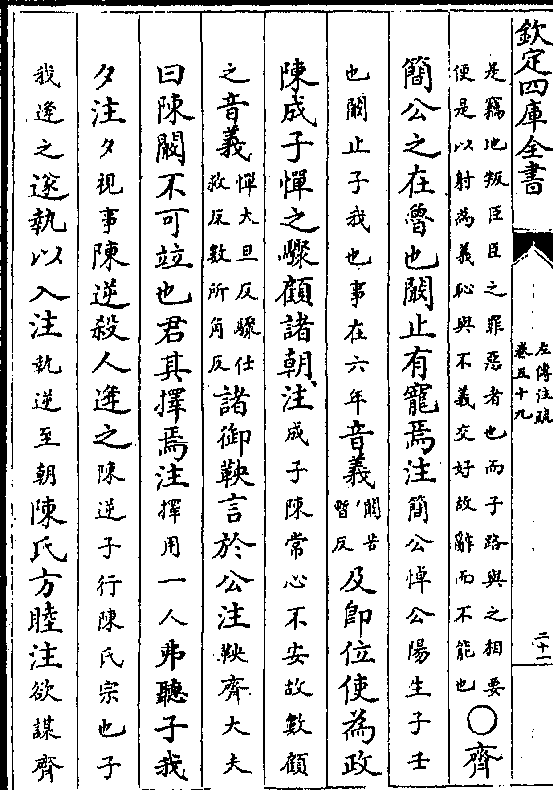 欽定四庫全書
左傳注疏
卷五十九
二十一
是竊地叛臣臣之罪惡者也而子路與之相要
便是以射為義恥與不義交好故辭而不能也〇齊
簡公之在魯也闞止有寵焉注簡公悼公陽生子壬
也闞止子我也事在六年音義闞苦暫反及即位使為政
陳成子憚之驟顧諸朝注成子陳常心不安故數顧
之音義憚大旦反驟仕救反數所角反諸御鞅言於公注鞅齊大夫
曰陳闞不可竝也君其擇焉注擇用一人弗聽子我
夕注夕視事陳逆殺人逢之陳逆子行陳氏宗也子
我逢之遂執以入注執逆至朝陳氏方睦注欲謀齊